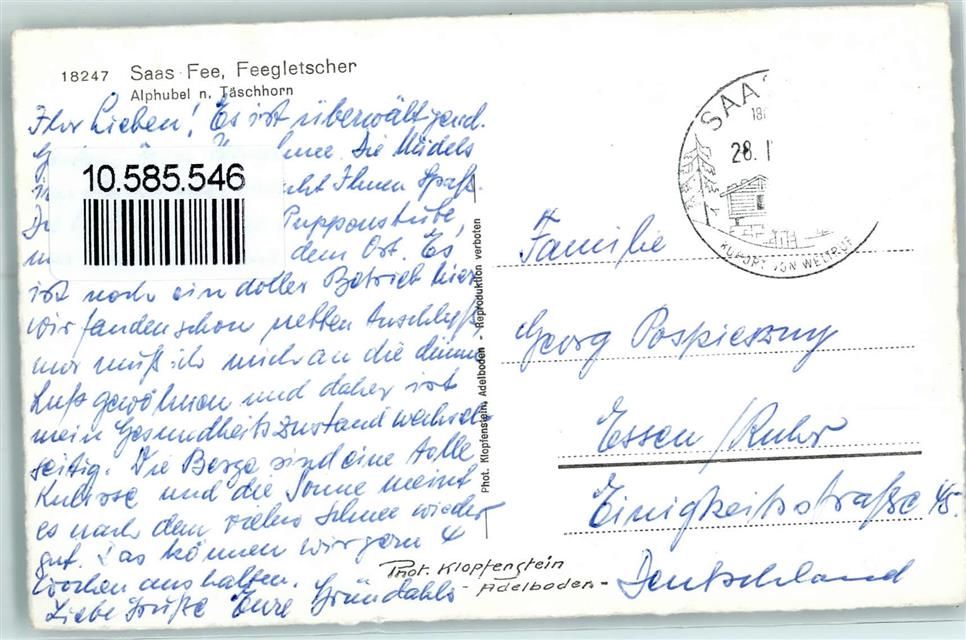 18247 Saas-Fee, Feegletscher
Alphubel n. Täschhorn
Ihr Lieben! Es ist überwältigend.
Die Mädels
10.585.546
Ihnen Spaß.
Puppenstube,
dem Ort. Es
ist noch ein doller Betrieb hier
wir fanden schon netten Anschluß,
nur muß ich mich an die dünne
Luft gewöhnen und daher ist
mein Gesundheitszustand wechsel-
seitig. Die Berge sind eine tolle
Kulisse und die Sonne meint
es nach dem vielen Schnee wieder
gut. Das können wir gern 4
Wochen aushalten.
Liebe Grüße Eure Gründahls
Phot. Klopfenstein, Adelboden - Reproduktion verboten
Phot. Klopfenstein
- Adelboden -
SAA
28. I
KURORT VON WELTRUF
Familie
Georg Pospieszny
Essen/Ruhr
Einigkeitsstraße 45.
Deutschland